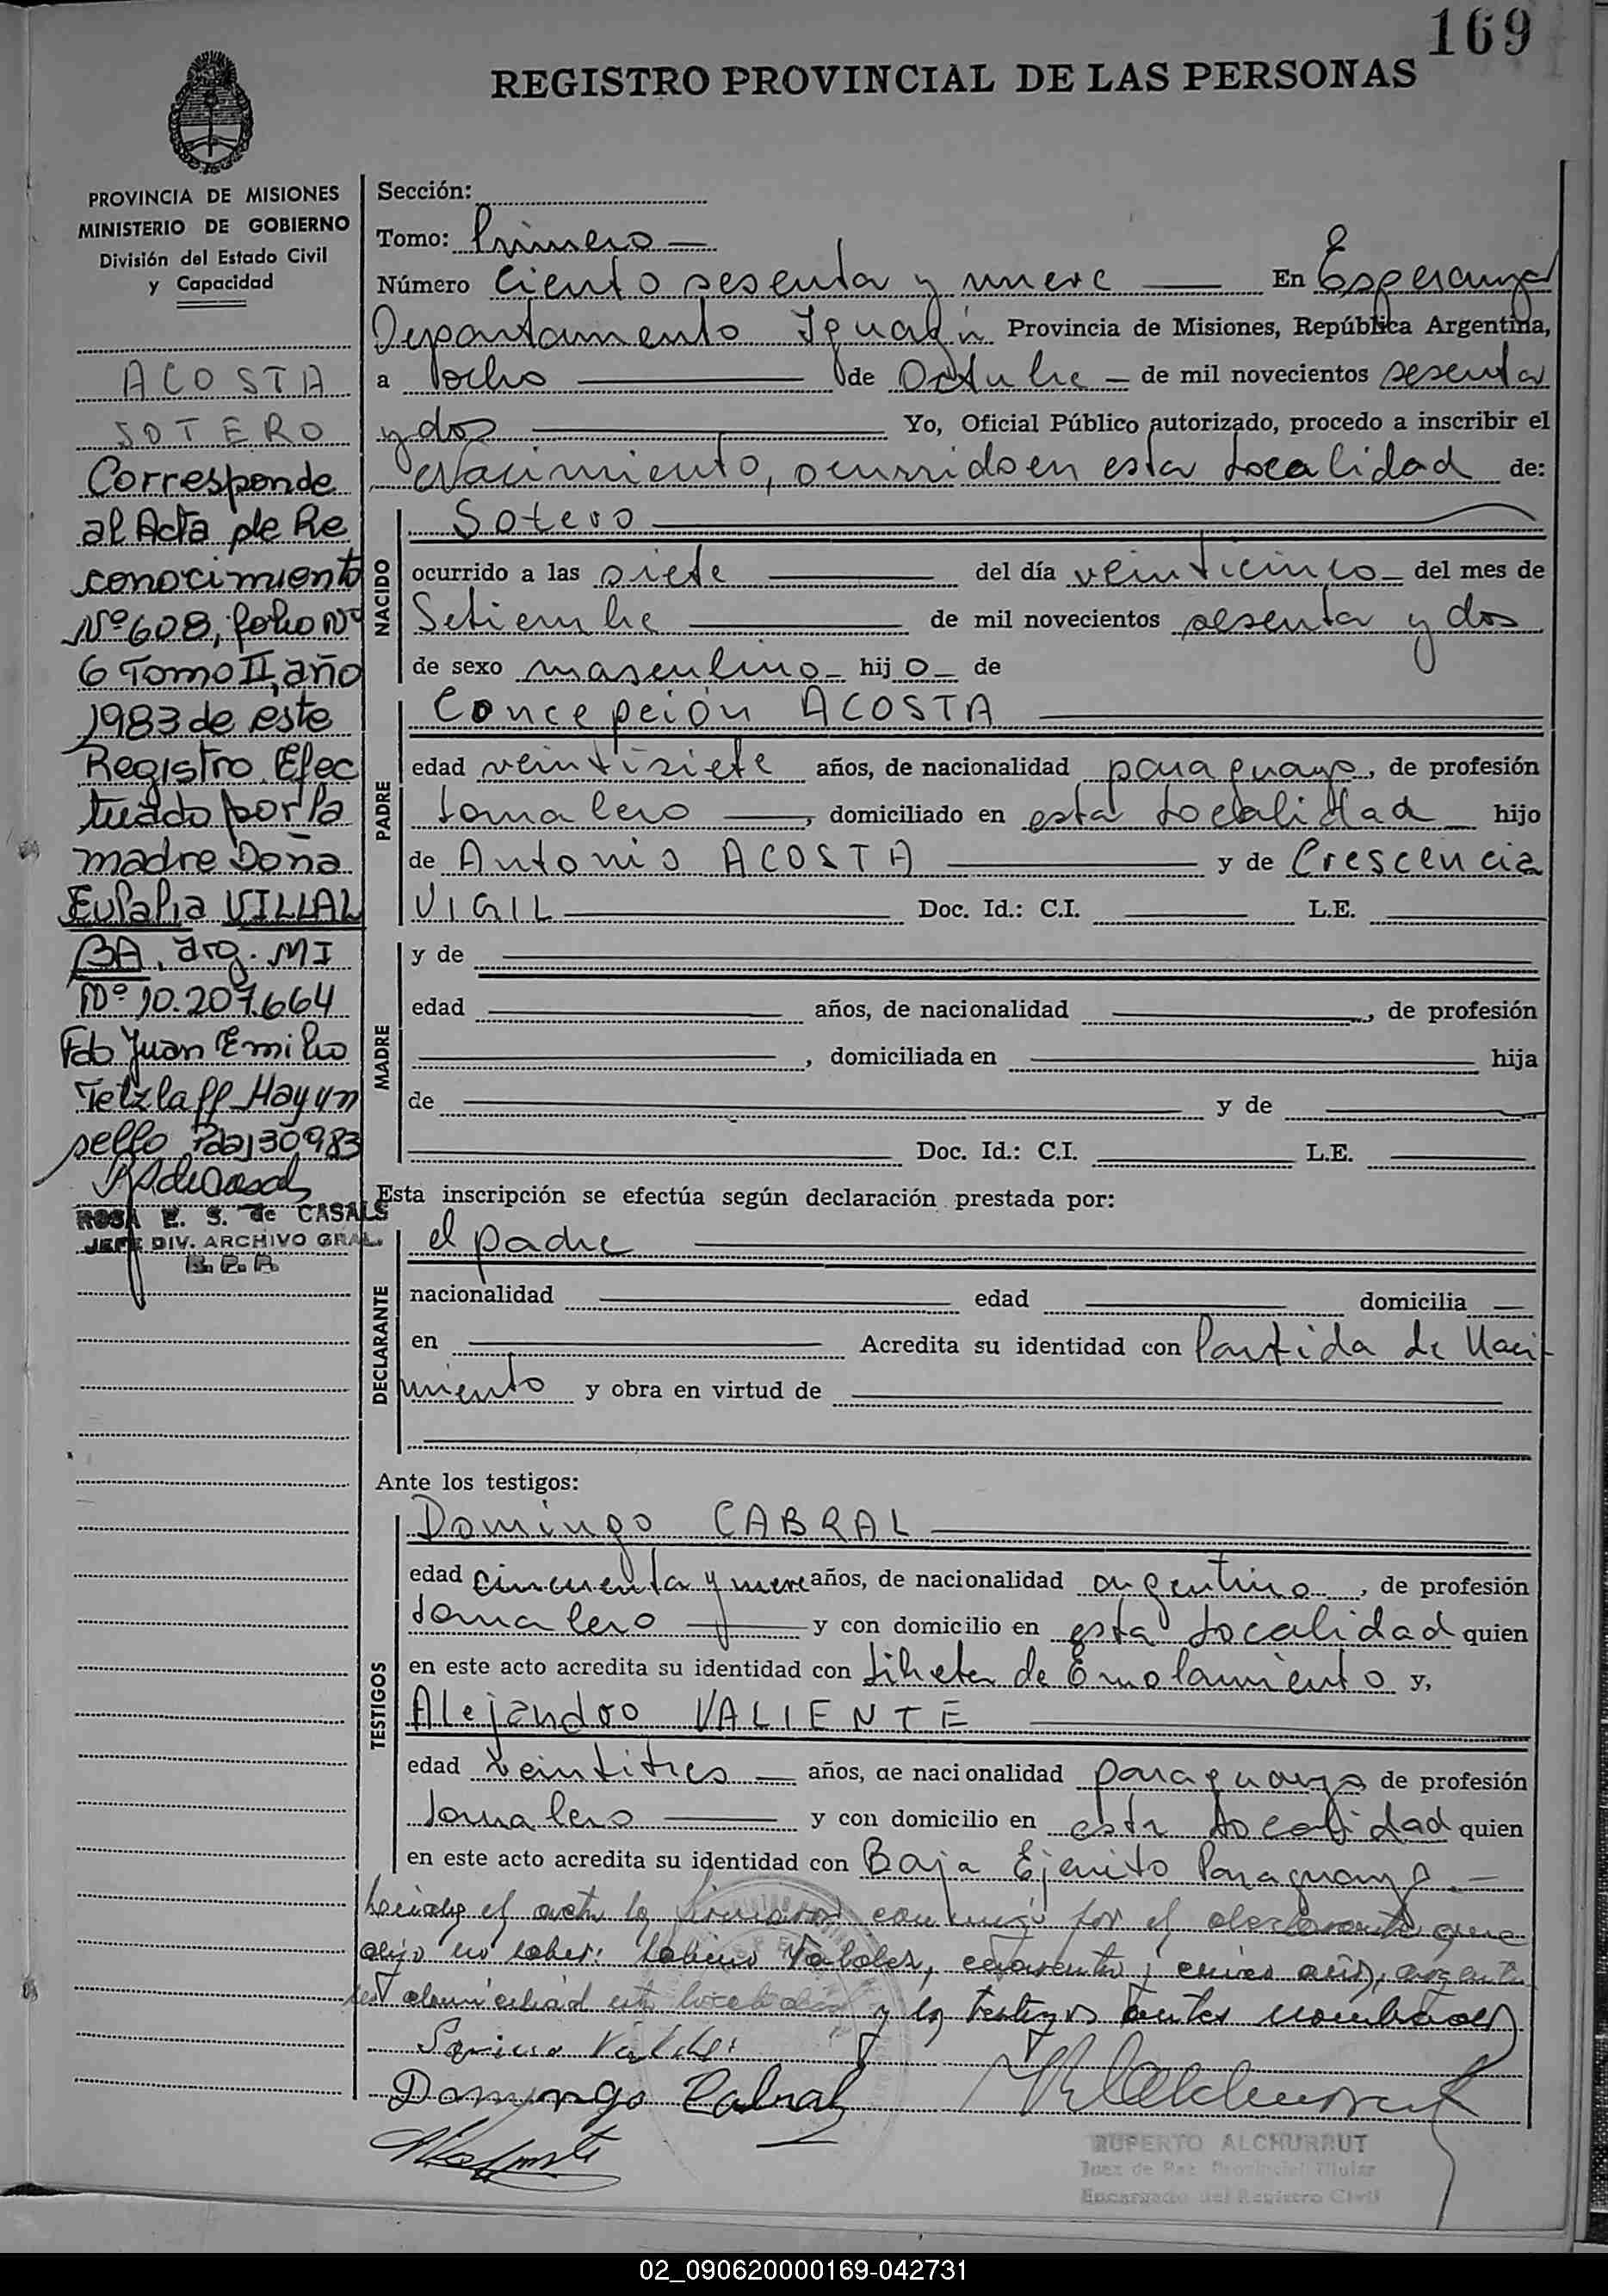 169
REGISTRO PROVINCIAL DE LAS PERSONAS
PROVINCIA DE MISIONES
MINISTERIO DE GOBIERNO
División del Estado Civil
y Capacidad
ACOSTA
SOTERO
Corresponde
al Acta de Re
conocimiento
Nº 608, folio Nº
6 Tomo II, año
1983 de este
Registro Efec
tuado por la
madre Doña
Eulalia VILLAL
BA, arg. MI
Nº 10.207.664
Fdo Juan Emilio
Tetzlaff Hay un
sello Pdas 30983
ROSA E. S. de CASALS
JEFE DIV. ARCHIVO GRAL.
R. P. P.
Sección:
Tomo: Primero
Número Ciento sesenta y nueve En Esperanza
Departamento Iguazú Provincia de Misiones, República Argentina,
a ocho de Octubre de mil novecientos sesenta
y dos Yo, Oficial Público autorizado, procedo a inscribir el
Nacimiento, ocurrido en esta Localidad de:
NACIDO
Sotero
ocurrido a las siete del día veinticinco del mes de
Setiembre de mil novecientos sesenta y dos
de sexo masculino hijo de
PADRE
Concepción ACOSTA
edad veintisiete años, de nacionalidad paraguayo, de profesión
Jornalero, domiciliado en esta Localidad hijo
de Antonio ACOSTA y de Crescencia
VIGIL Doc. Id.: C.I. L.E.
MADRE
y de
edad años, de nacionalidad , de profesión
, domiciliada en hija
de y de
Doc. Id.: C.I. L.E.
Esta inscripción se efectúa según declaración prestada por:
DECLARANTE
el padre
nacionalidad edad domicilia
en Acredita su identidad con Partida de Naci-
miento y obra en virtud de
Ante los testigos:
TESTIGOS
Domingo CABRAL
edad cincuenta y nueve años, de nacionalidad argentino, de profesión
Jornalero y con domicilio en esta Localidad quien
en este acto acredita su identidad con Libreta de Enrolamiento y,
Alejandro VALIENTE
edad veintitres años, de nacionalidad paraguayo de profesión
Jornalero y con domicilio en esta Localidad quien
en este acto acredita su identidad con Baja Ejercito Paraguayo.
el acta la conmigo por el declarante que
dijo no saber: Sabino Valdez, y cinco años,
esta localidad y los testigos antes nombrados
Domingo Cabral
RUPERTO ALCHURRUT
Juez de Paz Provincial Titular
Encargado del Registro Civil
02_090620000169-042731